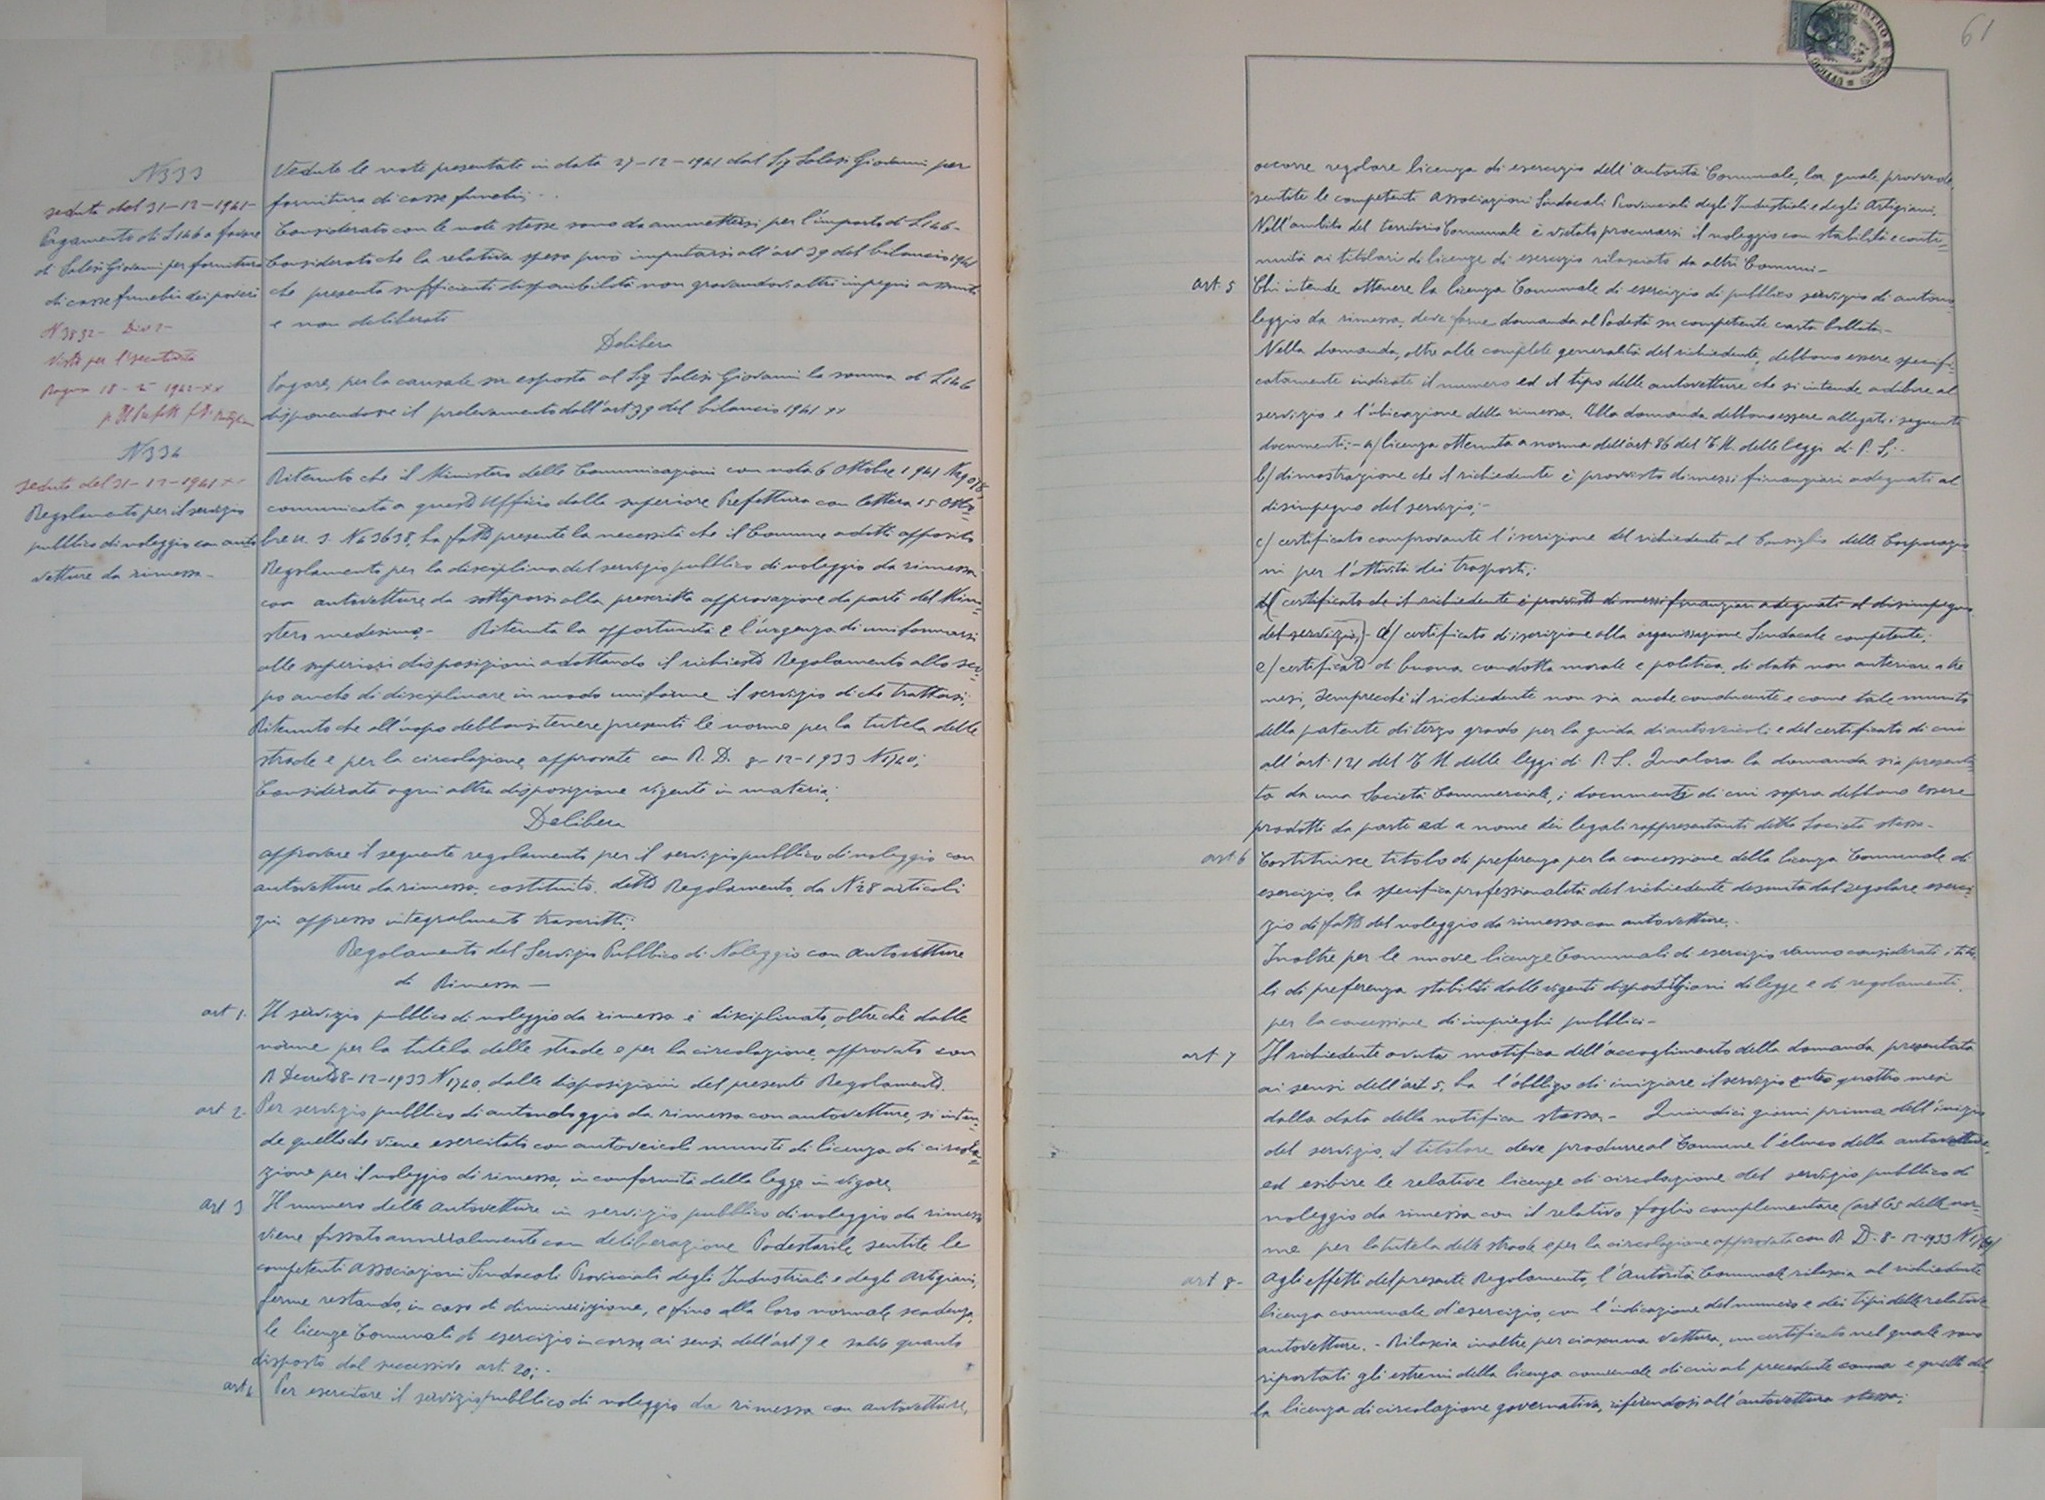 N 333
seduta del 31-12-1941-
Pagamento di L 146 a favore
di Salesi Giovanni per fornitura
di casse funebri dei poveri
N 3892- Div 2-
Visto per l'esecutività
Ragusa 18-2-1942-XX
p. Il Prefetto
Vedute le note presentate in data 27-12-1941 dal Sig Salesi Giovanni per
fornitura di casse funebri.
Considerato con le note stesse sono da ammettersi per l'importo di L 146-
Considerato che la relativa spesa può imputarsi all'art 39 del bilancio 1941
che presenta sufficiente disponibilità non gravandovi altri impegni assunti
e non deliberati
Delibera
Pagare, per la causale su esposta al Sig Salesi Giovanni la somma di L 146
disponendone il prelevamento dall'art 39 del bilancio 1941 XX
N 334
seduta del 31-12-1941 XX
Regolamento per il servizio
pubblico di noleggio con auto
vetture da rimessa-
Ritenuto che il Ministero delle Comunicazioni con nota 6 Ottobre 1941
comunicata a questo Ufficio dalla superiore Prefettura con lettera 15 Otto=
bre u. s. N 43638, ha fatto presente la necessità che il Comune adotti apposito
Regolamento per la disciplina del servizio pubblico di noleggio da rimessa
con autovetture da sottoporsi alla prescritta approvazione da parte del Mini=
stero medesimo- Ritenuta la opportunità e l'urgenza di uniformarsi
alle superiori disposizioni adottando il richiesto Regolamento allo sco=
po anche di disciplinare in modo uniforme il servizio di che trattasi;
Ritenuto che all'uopo debbonsi tenere presenti le norme per la tutela delle
strade e per la circolazione approvate con R. D. 8-12-1933 N 1740;
Considerata ogni altra disposizione vigente in materia;
Delibera
approvare il seguente regolamento per il servizio pubblico di noleggio con
autovetture da rimessa costituito detto Regolamento da N 28 articoli
qui appresso integralmente trascritti:
Regolamento del Servizio Pubblico di Noleggio con autovetture
di Rimessa-
art 1- Il servizio pubblico di noleggio da rimessa è disciplinato, oltre che dalle
norme per la tutela delle strade e per la circolazione approvato con
R Decreto 8-12-1933 N 1740 dalle disposizioni del presente Regolamento.
art 2- Per servizio pubblico di autonoleggio da rimessa con autovetture, si inten=
de quello che viene esercitato con autoveicoli muniti di licenza di circola=
zione per il noleggio di rimessa, in conformità della legge in vigore
art 3 Il numero delle autovetture in servizio pubblico di noleggio da rimessa
viene fissato annualmente con deliberazione Podestarile sentite le
competenti associazioni Sindacali Provinciali degli Industriali e degli artigiani,
ferme restando, in caso di diminuizione, e fino alla loro normale scadenza,
le licenze Comunali di esercizio in corso ai sensi dell'art 9 e salvo quanto
disposto dal successivo art. 20;-
art 4 Per esercitare il servizio pubblico di noleggio da rimessa con autovetture,
61
occorre regolare licenza di esercizio dell'autorità Comunale, la quale provvede
sentite le competenti associazioni Sindacali Provinciali degli Industriali e degli Artigiani.
Nell'ambito del territorio Comunale è vietato procurarsi il noleggio con stabilità e conti=
nuità ai titolari di licenze di esercizio rilasciato da altri Comuni-
art 5 Chi intende ottenere la licenza Comunale di esercizio di pubblico servizio di autono=
leggio da rimessa, deve farne domanda al Podestà su competente carta bollata.-
Nella domanda, oltre alle complete generalità del richiedente, debbono essere specifi=
catamente indicate il numero ed il tipo delle autovetture che si intende adibire al
servizio e l'ubicazione della rimessa. Alla domanda debbono essere allegati i seguenti
documenti:- a/ licenza ottenuta a norma dell'art 86 del T.U. delle leggi di P. S;-
b/ dimostrazione che il richiedente è provvisto di mezzi finanziari adeguati al
disimpegno del servizio;-
c/ certificato comprovante l'iscrizione del richiedente al Consiglio delle Corporazio
ni per l'attività dei trasporti;
d/ certificato che il richiedente è provvisto di mezzi finanziari adeguati al disimpegno
del servizio;- d/ certificato di iscrizione alla organizzazione Sindacale competente;
e/ certificato di buona condotta morale e politica, di data non anteriore a tre
mesi, sempreché il richiedente non sia anche conducente e come tale munito
della patente di terzo grado per la guida di autoveicoli e del certificato di cui
all'art 121 del T.U. delle leggi di P. S. Qualora la domanda sia presenta
ta da una Società Commerciale, i documenti di cui sopra debbono essere
prodotti da parte ed a nome dei legali rappresentanti detta Società stessa-
art 6 Costituisce titolo di preferenza per la concessione della licenza Comunale di
esercizio, la specifica professionalità del richiedente desunta dal regolare eserci
zio di fatto del noleggio da rimessa con autovetture.
Inoltre per le nuove licenze Comunali di esercizio vanno considerati i tito
li di preferenza stabiliti dalle vigenti disposizioni di legge e di regolamenti
per la concessione di impieghi pubblici-
art 7 Il richiedente avuta notifica dell'accoglimento della domanda presentata
ai sensi dell'art 5, ha l'obbligo di iniziare il servizio entro quattro mesi
dalla data della notifica stessa.- Quindici giorni prima dell'inizio
del servizio, il titolare deve produrre al Comune l'elenco delle autovetture,
ed esibire le relative licenze di circolazione del servizio pubblico di
noleggio da rimessa con il relativo foglio complementare (art 65 delle nor=
me per la tutela delle strade e per la circolazione approvate con R. D. 8-12-1933 N 1740)
art 8- agli effetti del presente Regolamento, l'autorità Comunale rilascia al richiedente
licenza comunale d'esercizio, con l'indicazione del numero e dei tipi delle relative
autovetture.- Rilascia inoltre per ciascuna vettura, un certificato nel quale sono
riportati gli estremi della licenza comunale di cui al precedente comma e quelli del
la licenza di circolazione governativa, riferendosi all'autovettura stessa;